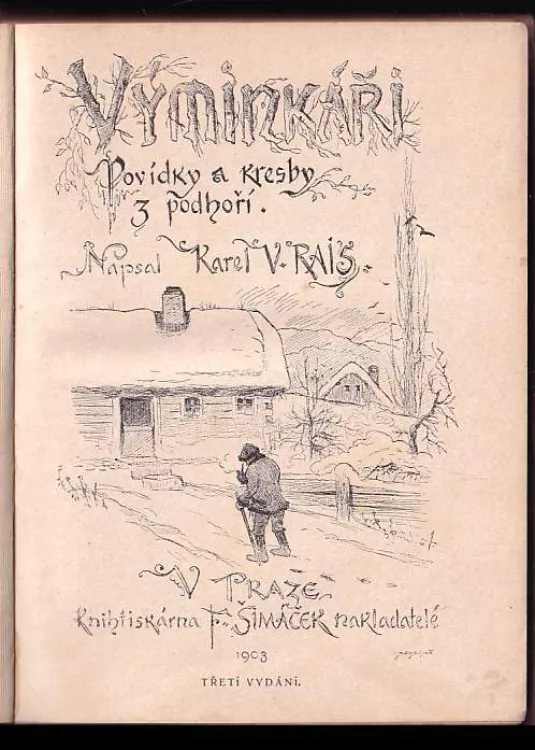 Výminkáři
Povídky a kresby
z podhoří.
Napsal Karel V. RAIS.
V PRAZE
Knihtiskárna F. ŠIMÁČEK nakladatelé
1903
TŘETÍ VYDÁNÍ.